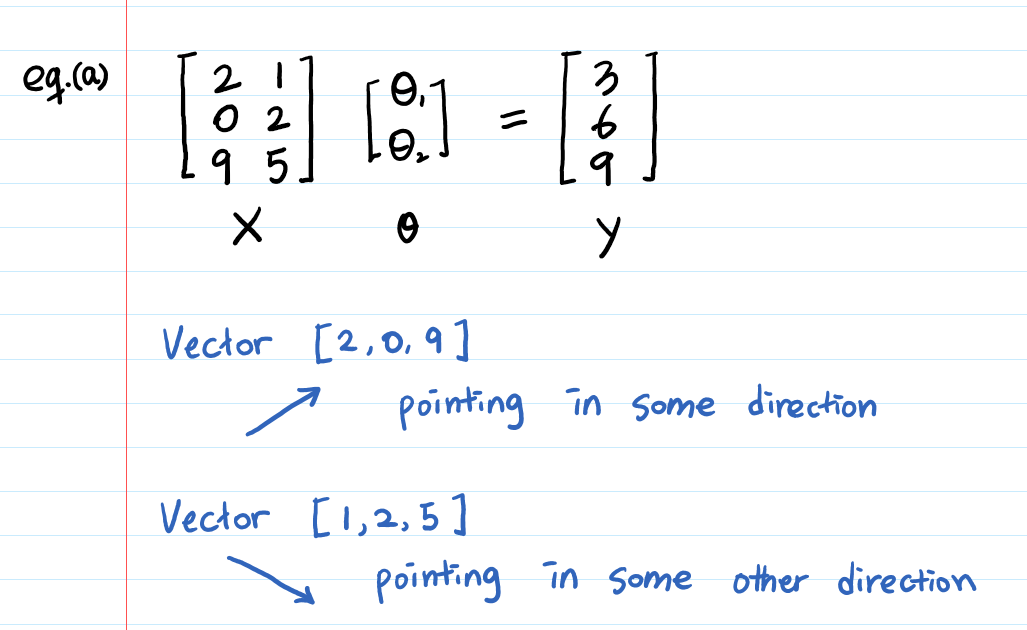 eq.(a) [2 1 0 2 9 5] [θ₁ θ₂] = [3 6 9]
X θ y
Vector [2,0,9]
pointing in some direction
Vector [1,2,5]
pointing in some other direction